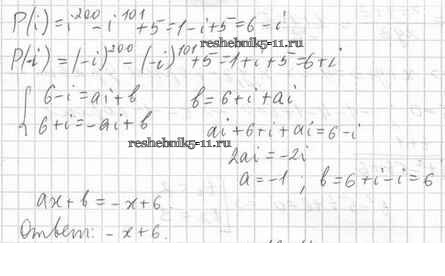 P(i) = i²⁰⁰ - i¹⁰¹ + 5 = 1 - i + 5 = 6 - i
reshebnik5-11.ru
P(-i) = (-i)²⁰⁰ - (-i)¹⁰¹ + 5 = 1 + i + 5 = 6 + i
{ 6 - i = ai + b
6 + i = -ai + b
b = 6 + i + ai
ai + 6 + i + ai = 6 - i
reshebnik5-11.ru
2ai = -2i
a = -1 ; b = 6 + i - i = 6
ax + b = -x + 6
Ответ: -x + 6.